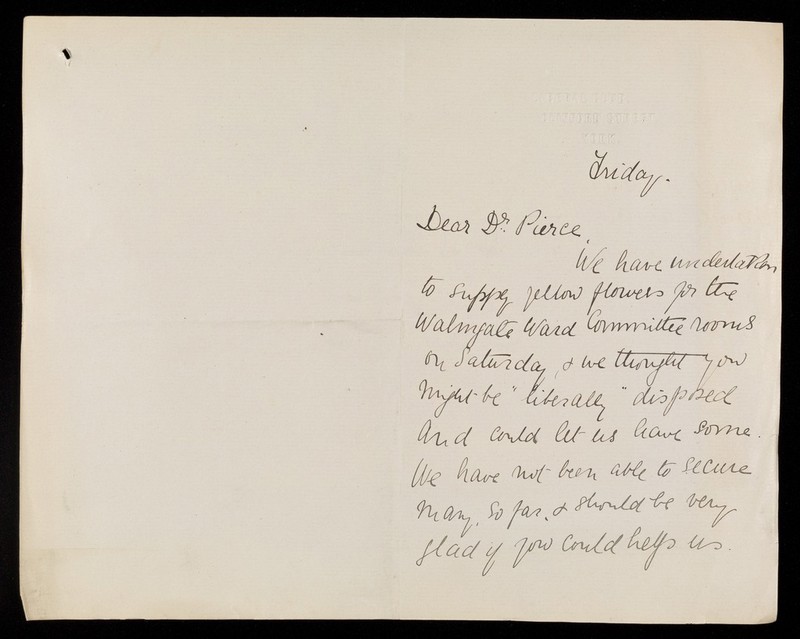 YORK.
Friday.
Dear Dr. Pierce,
We have undertaken
to supply yellow flowers for the
Walmgate Ward Committee rooms
on Saturday, & we thought you
might be "liberally" disposed
and could let us have some.
We have not been able to secure
many, so far, & should be very
glad if you could help us.